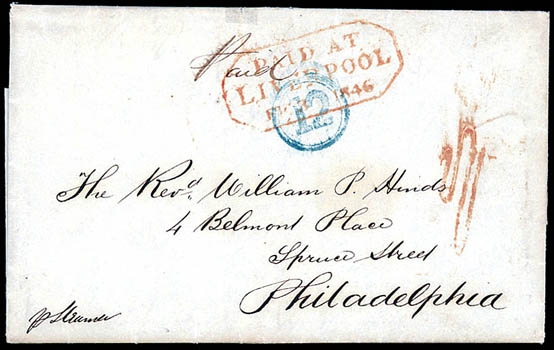 Paid
PAID AT
LIVERPOOL
1846
12
The Revd. William P. Hinds
4 Belmont Place
Spruce Street
Philadelphia
p Steamer